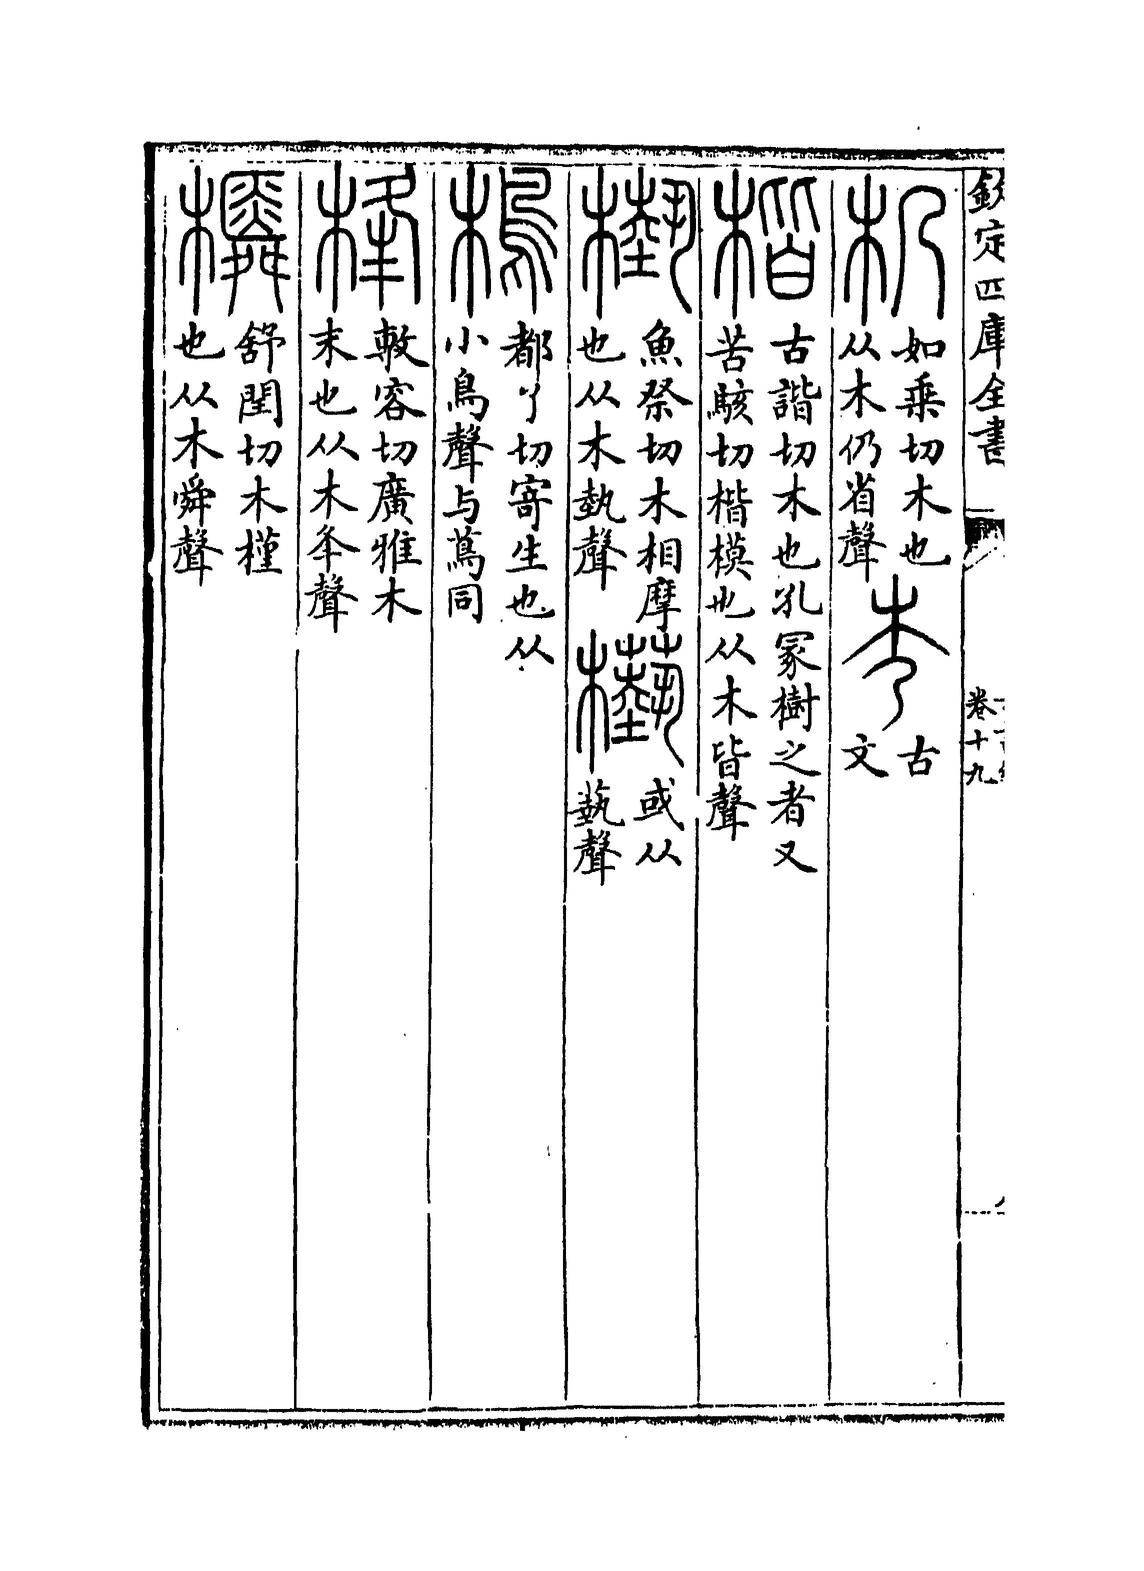 欽定四庫全書
卷十九
如乗切木也
从木仍省聲
古
文
楷
古諧切木也孔冢樹之者又
苦駭切楷模也从木皆聲
槸
魚祭切木相摩
也从木埶聲
或从
蓺聲
樢
都了切寄生也从
小鳥聲与蔦同
桻
敕容切廣雅木
末也从木夆聲
橓
舒閏切木槿
也从木舜聲